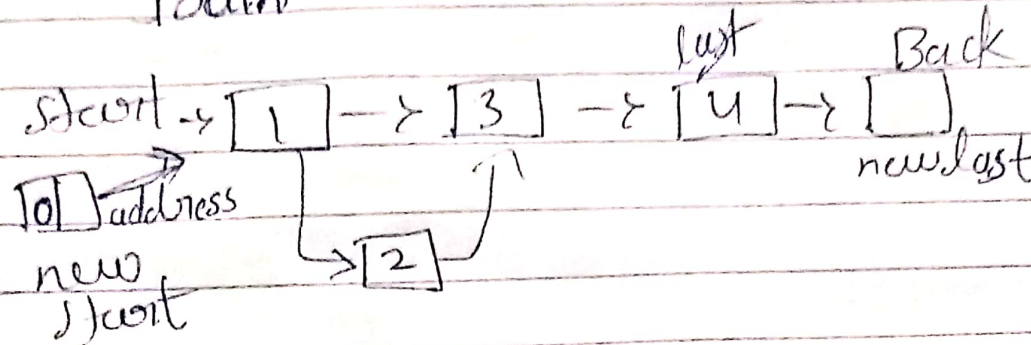 last Back
start → 1 → 3 → 4 → new last
0 address
2
new
start